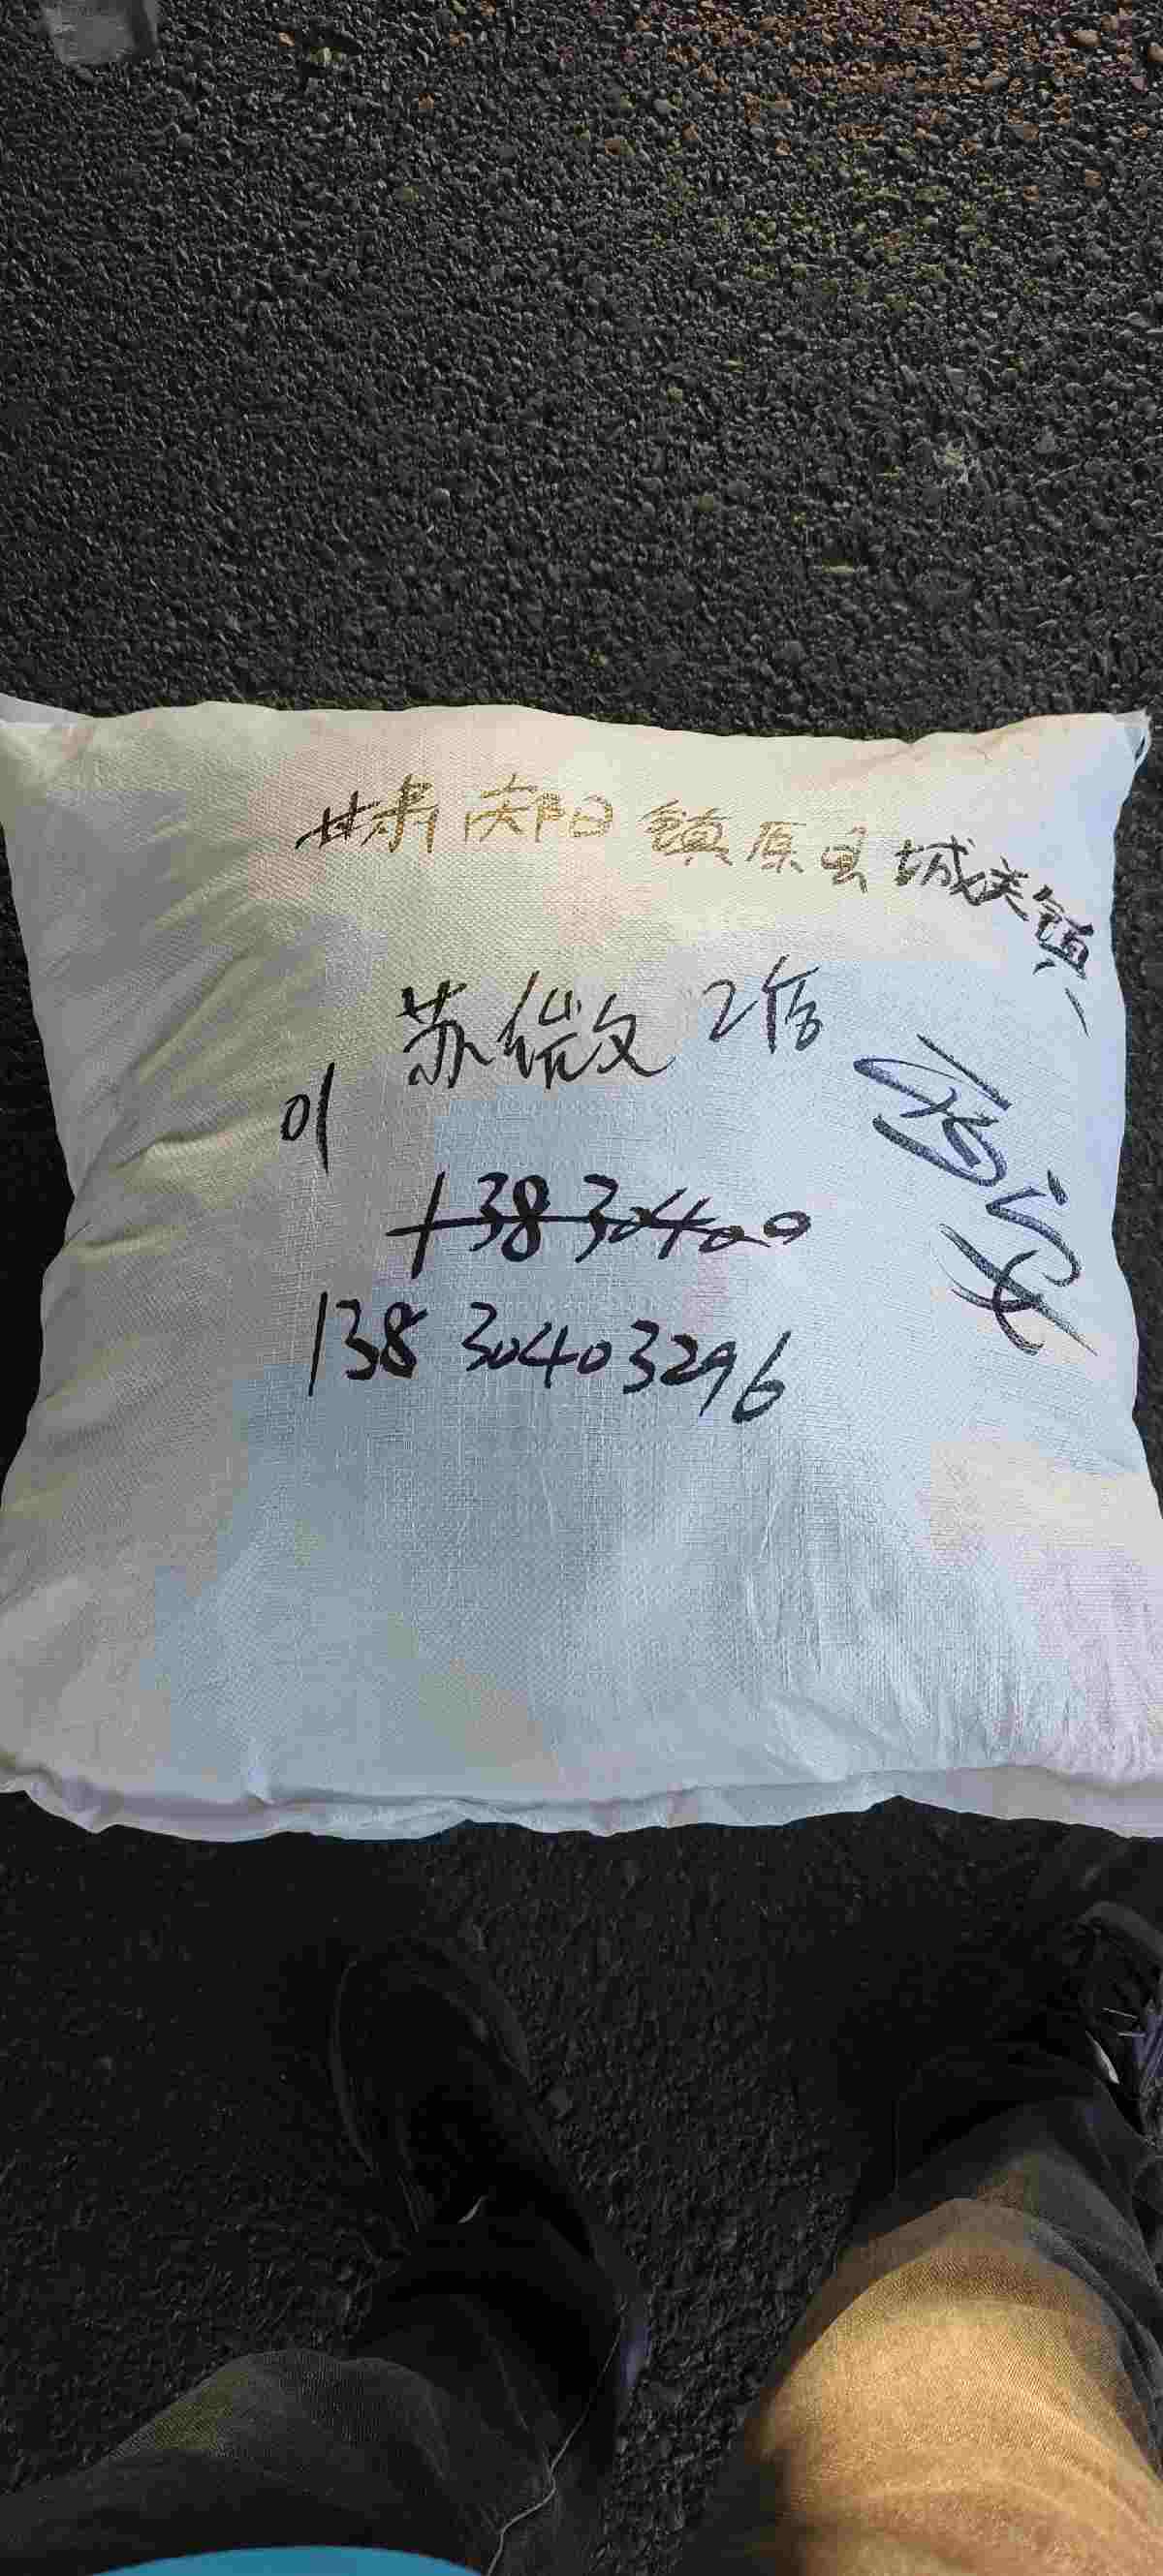 甘肃庆阳镇原县城关镇
苏微文 2倍
01
138 30400
138 30403296